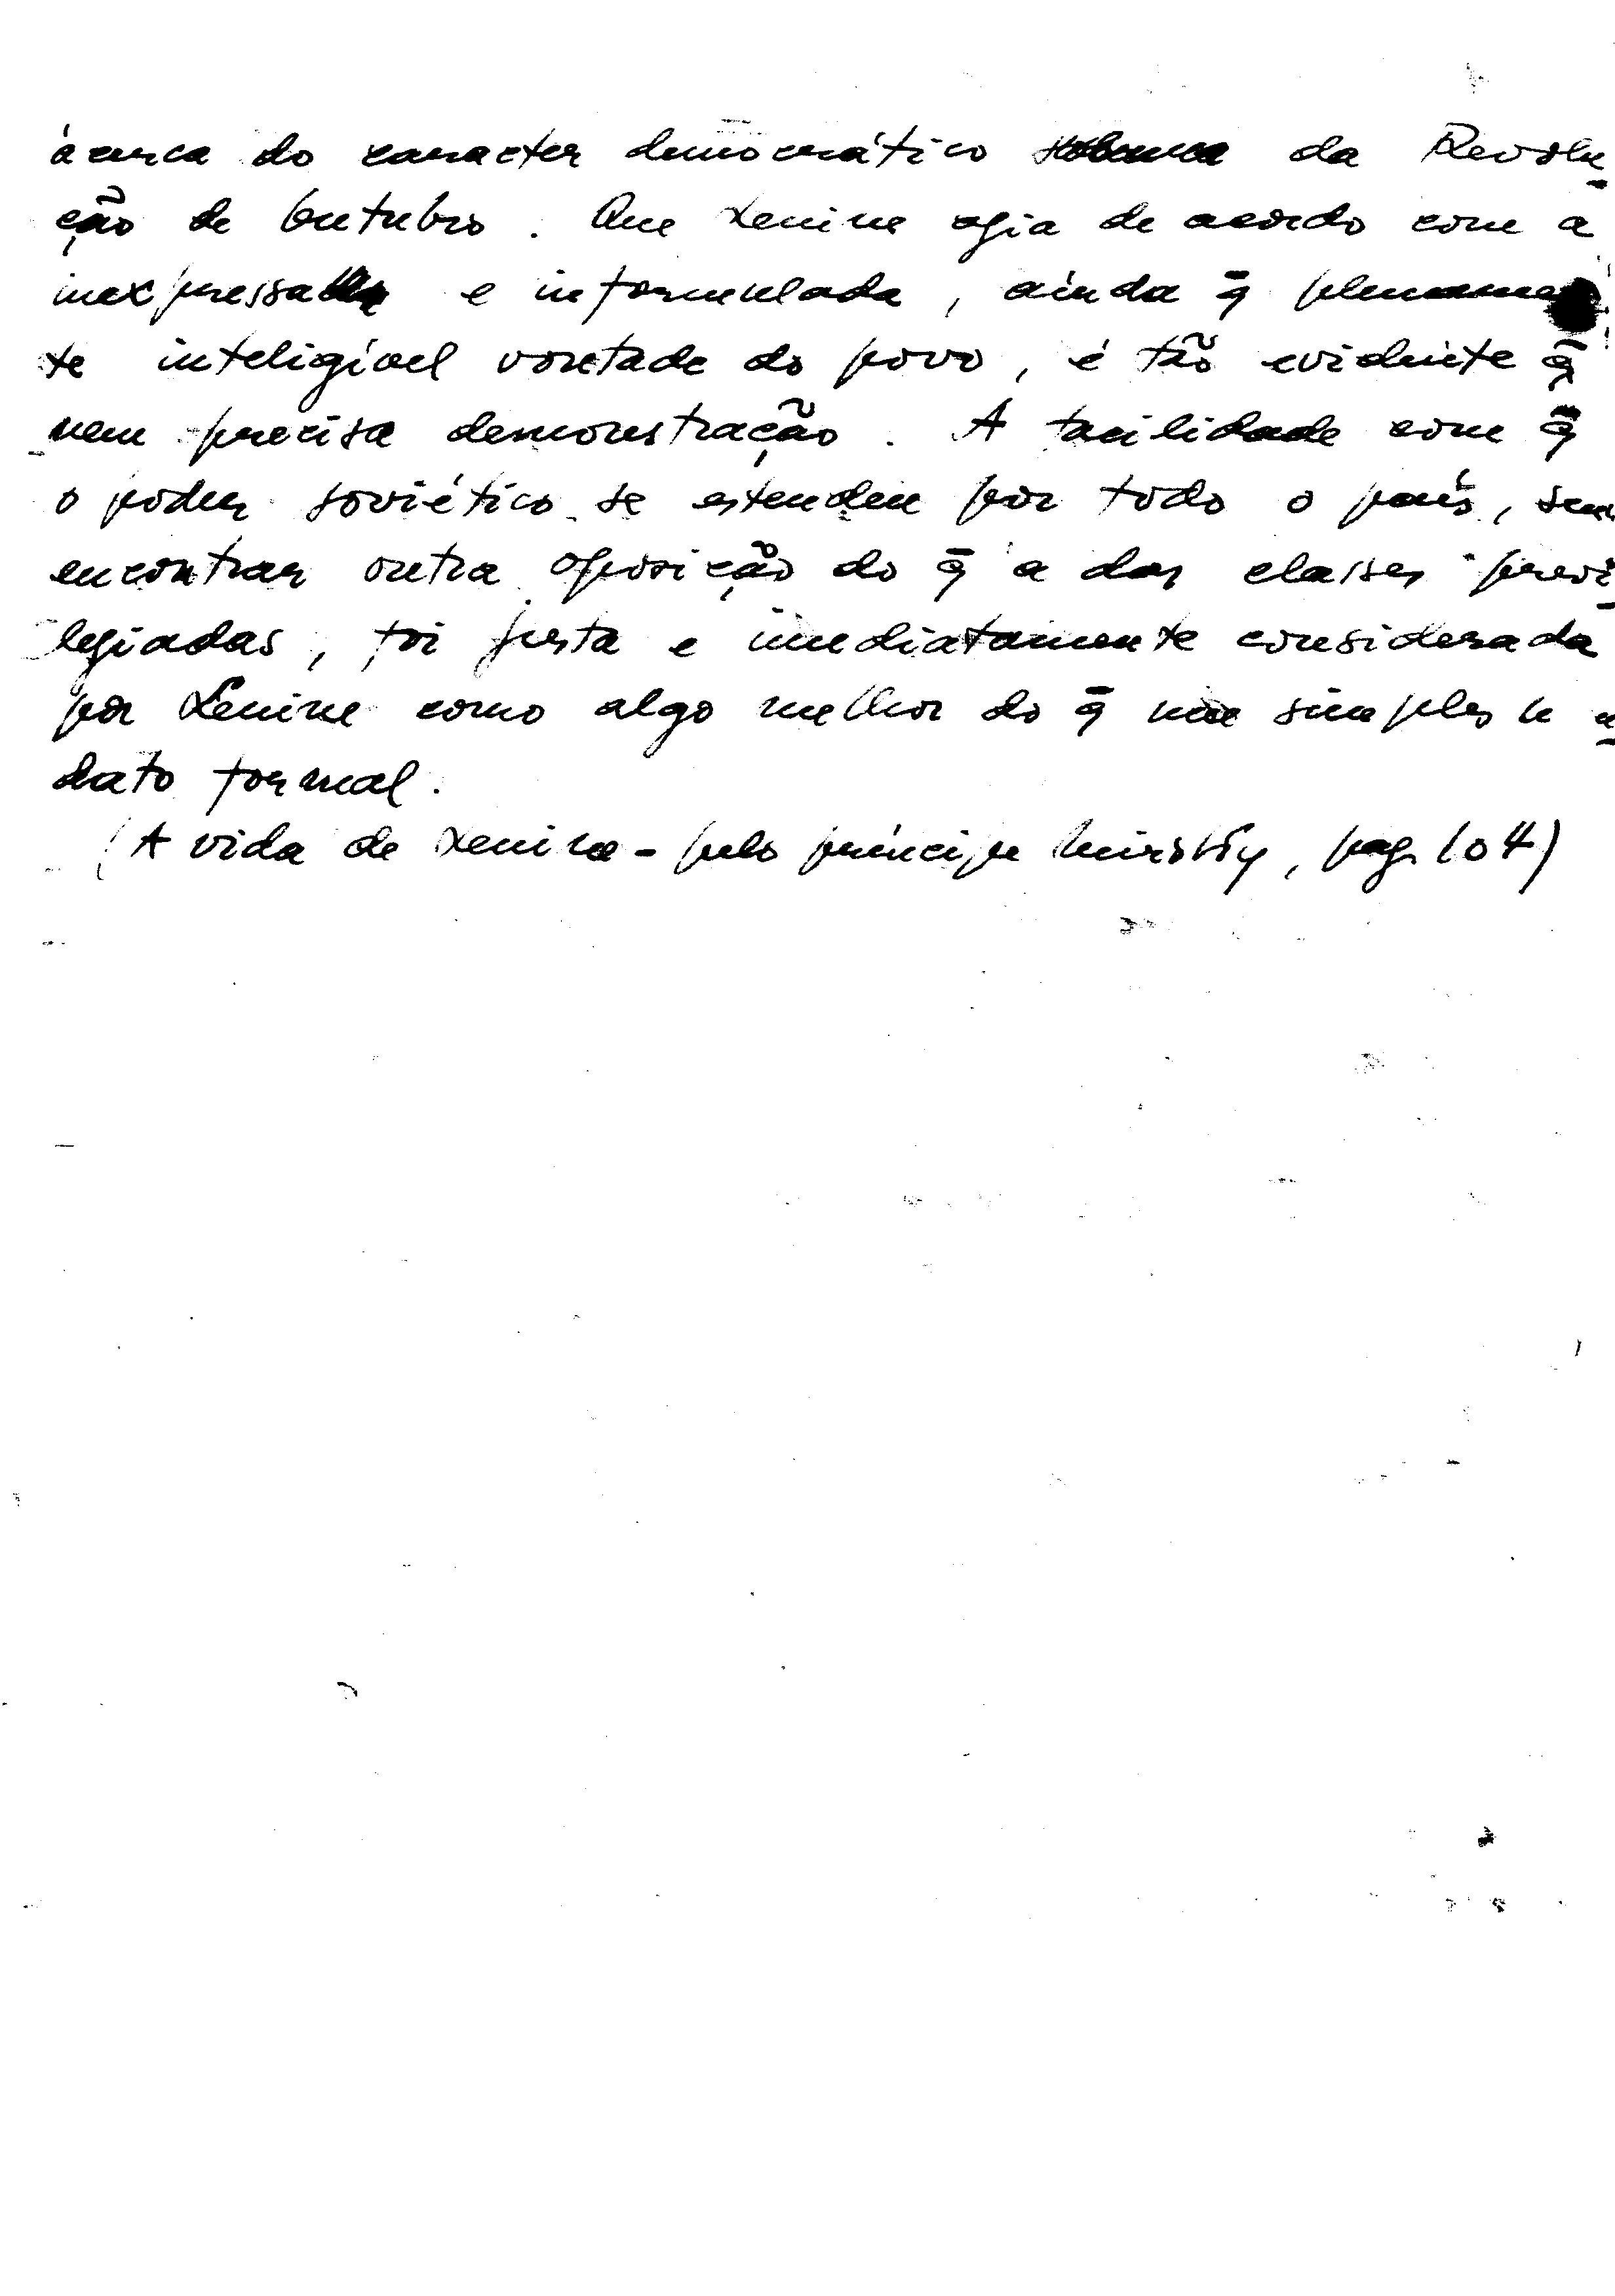 àcerca do caracter democrático da Revolu
ção de Outubro. Que Lenine agia de acordo com a
inexpressa e informulada, ainda q̄ plenamen
te inteligível vontade do povo, é tão evidente q̄
nem precisa demonstração. A facilidade com q̄
o poder soviético se estendeu por todo o país, sem
encontrar outra oposição do q̄ a das classes previ
legiadas, foi justa e imediatamente considerada
por Lenine como algo melhor do q̄ um simples
dato formal.
(A vida de Lenine - pelo príncipe Mirsky, pag. 104)